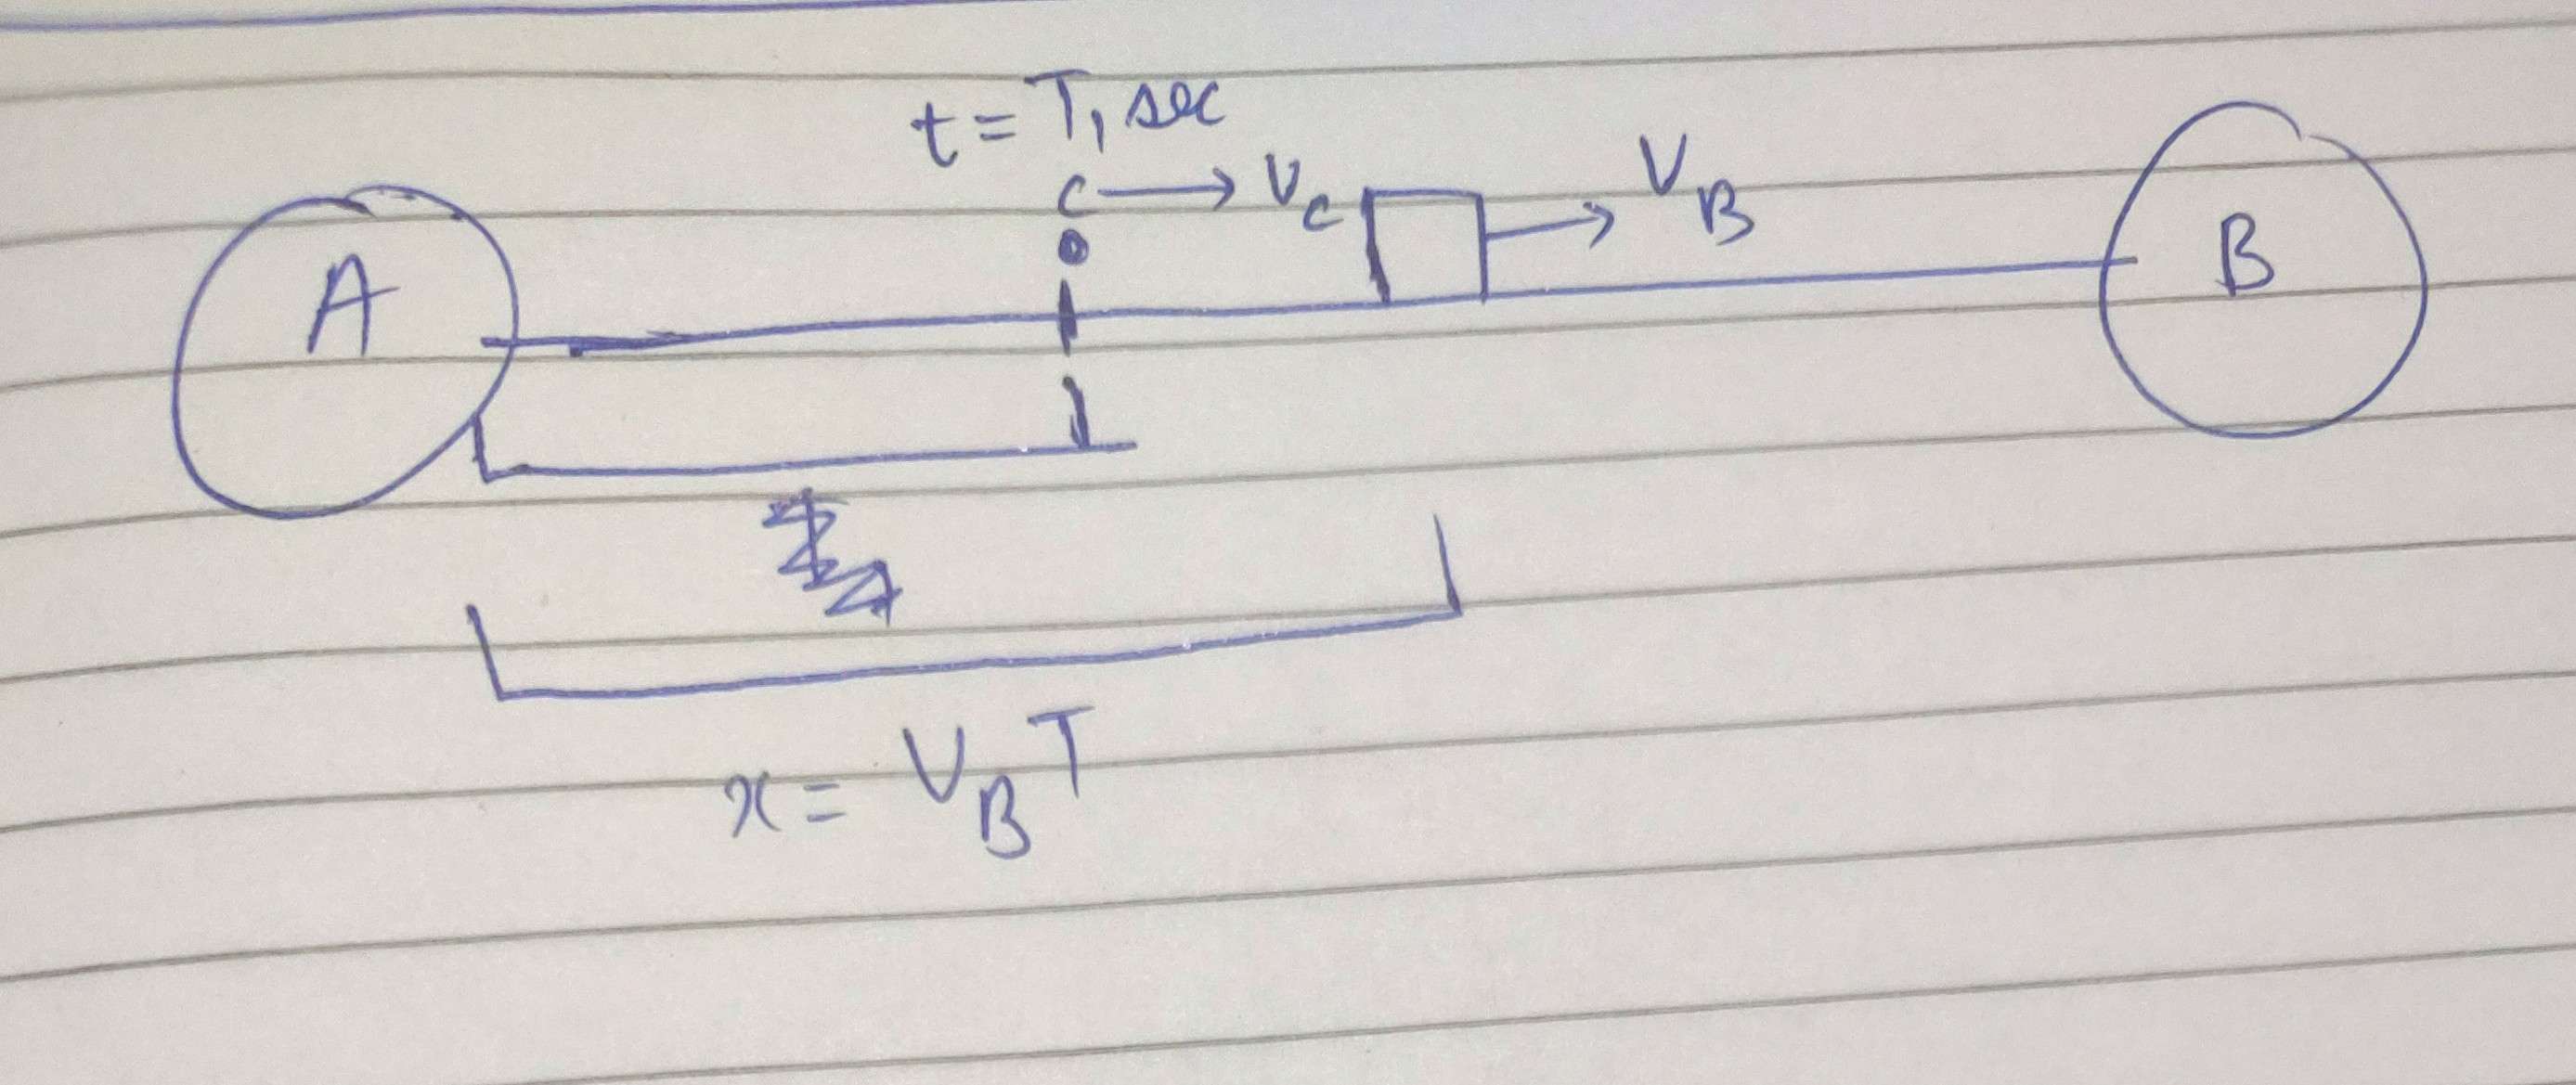 t = T₁ sec
C → V_C
→ V_B
A
B
x = V_B T